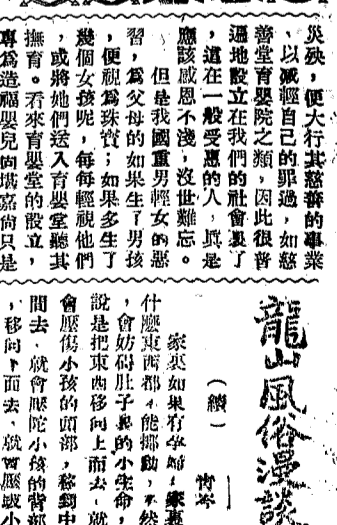 災殃，便大行其慈善的事業
、以减輕自己的罪過，如慈
善堂育嬰院之類，因此很普
遍地設立在我們的社會裏了
，這在一般受惠的人，真是
應該感恩不淺，沒世難忘。
但是我國重男輕女的惡
習，爲父母的如果生了男孩
，便視爲珠寶；如果多生了
幾個女孩呢，每每輕視他們
，或將她們送入育嬰堂聽其
撫育。看來育嬰堂的設立，
專爲造福嬰兒尚堪嘉尚只是
龍山風俗漫談
（續）
家裏如果有孕婦，家裏
什麽東西都不能挪動，不然
，會妨碍肚子裏的小生命，
說是把東西移向上面去，就
會壓傷小孩的頭部，移到中
間去，就會壓陀小孩的背部
，移向下面去，就會壓或小